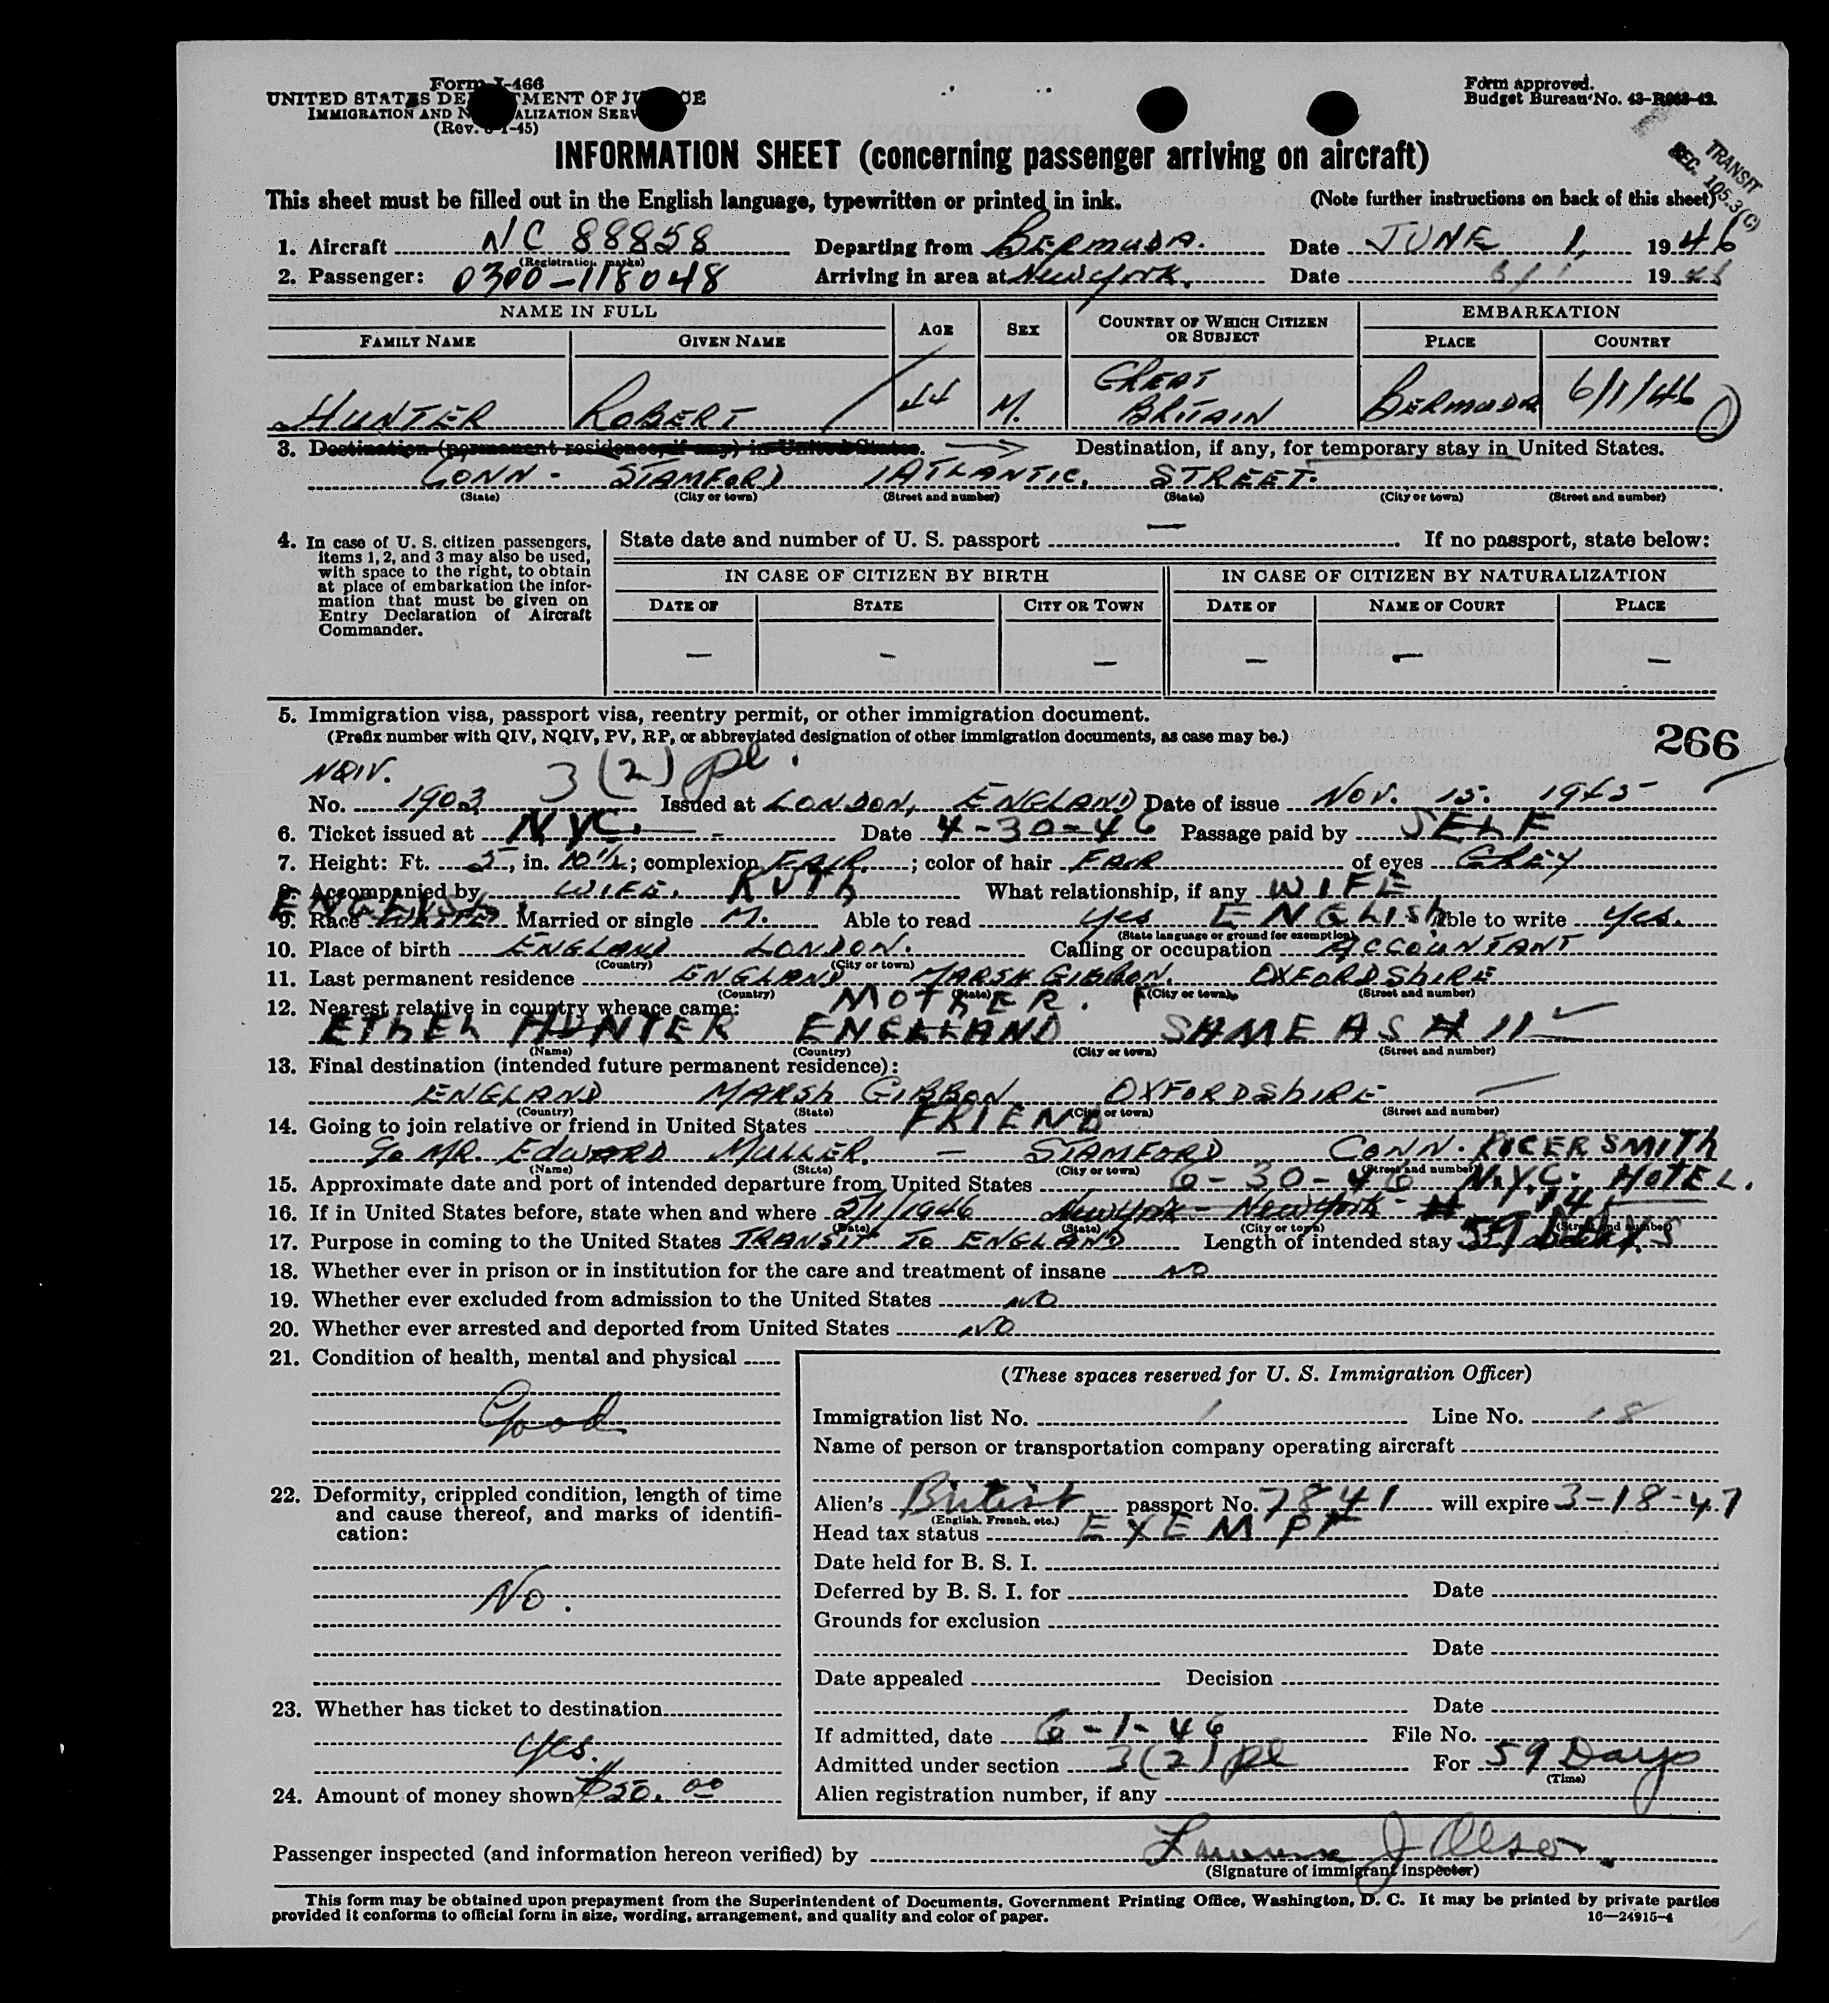 Form I-466
UNITED STATES DEPARTMENT OF JUSTICE
IMMIGRATION AND NATURALIZATION SERVICE
(Rev. 6-1-45)
Form approved.
Budget Bureau No. 43-R068-42.
TRANSIT
SEC. 105.3(C)
INFORMATION SHEET (concerning passenger arriving on aircraft)
This sheet must be filled out in the English language, typewritten or printed in ink. (Note further instructions on back of this sheet)
1. Aircraft NC 88858 Departing from BERMUDA. Date JUNE 1, 1946
(Registration marks)
2. Passenger: 0300-118048 Arriving in area at New York. Date 6/1 1946
NAME IN FULL AGE SEX COUNTRY OF WHICH CITIZEN OR SUBJECT EMBARKATION
FAMILY NAME GIVEN NAME PLACE COUNTRY
HUNTER ROBERT 44 M. GREAT BRITAIN BERMUDA 6/1/46
3. Destination (permanent residence, if any) in United States. Destination, if any, for temporary stay in United States.
CONN - STAMFORD 1 ATLANTIC. STREET.
(State) (City or town) (Street and number) (State) (City or town) (Street and number)
4. In case of U. S. citizen passengers, items 1, 2, and 3 may also be used, with space to the right, to obtain at place of embarkation the information that must be given on Entry Declaration of Aircraft Commander.
State date and number of U. S. passport — If no passport, state below:
IN CASE OF CITIZEN BY BIRTH IN CASE OF CITIZEN BY NATURALIZATION
DATE OF STATE CITY OR TOWN DATE OF NAME OF COURT PLACE
— — — — — —
5. Immigration visa, passport visa, reentry permit, or other immigration document.
(Prefix number with QIV, NQIV, PV, RP, or abbreviated designation of other immigration documents, as case may be.)
266
NQIV. 3(2) pl.
No. 1903 Issued at LONDON, ENGLAND Date of issue NOV. 15. 1945
6. Ticket issued at N.Y.C. Date 4-30-46 Passage paid by SELF
7. Height: Ft. 5, in. 10½; complexion FAIR. ; color of hair FAIR of eyes GREY
8. Accompanied by WIFE. RUTH What relationship, if any WIFE
ENGLISH.
9. Race WHITE Married or single M. Able to read Yes ENGLISH Able to write Yes.
(State language or ground for exemption)
10. Place of birth ENGLAND LONDON. Calling or occupation ACCOUNTANT
(Country) (City or town)
11. Last permanent residence ENGLAND MARSH GIBBON. OXFORDSHIRE
(Country) (State) (City or town) (Street and number)
12. Nearest relative in country whence came: MOTHER.
ETHEL HUNTER ENGLAND SAME AS # 11
(Name) (Country) (City or town) (Street and number)
13. Final destination (intended future permanent residence):
ENGLAND MARSH GIBBON OXFORDSHIRE
(Country) (State) (City or town) (Street and number)
14. Going to join relative or friend in United States FRIEND
c/o MR. EDWARD MULLER. — STAMFORD CONN. ROGER SMITH
(Name) (State) (City or town) (Street and number)
15. Approximate date and port of intended departure from United States 6-30-46 N.Y.C. HOTEL.
16. If in United States before, state when and where 2/1/1946 New York - New York - # 14
(Date) (State) (City or town) (Street and number)
17. Purpose in coming to the United States TRANSIT TO ENGLAND Length of intended stay 59 DAYS
18. Whether ever in prison or in institution for the care and treatment of insane NO
19. Whether ever excluded from admission to the United States NO
20. Whether ever arrested and deported from United States NO
21. Condition of health, mental and physical
Good
22. Deformity, crippled condition, length of time and cause thereof, and marks of identification:
No.
23. Whether has ticket to destination
Yes.
24. Amount of money shown $50.00
(These spaces reserved for U. S. Immigration Officer)
Immigration list No. 1 Line No. 18
Name of person or transportation company operating aircraft
Alien's British passport No. 7841 will expire 3-18-47
(English, French, etc.)
Head tax status EXEMPT
Date held for B. S. I.
Deferred by B. S. I. for Date
Grounds for exclusion
Date
Date appealed Decision
Date
If admitted, date 6-1-46 File No.
Admitted under section 3(2) pl For 59 Days
(Time)
Alien registration number, if any
Passenger inspected (and information hereon verified) by Lawrence J Olson
(Signature of immigrant inspector)
This form may be obtained upon prepayment from the Superintendent of Documents, Government Printing Office, Washington, D. C. It may be printed by private parties
provided it conforms to official form in size, wording, arrangement, and quality and color of paper. 16—24915-4